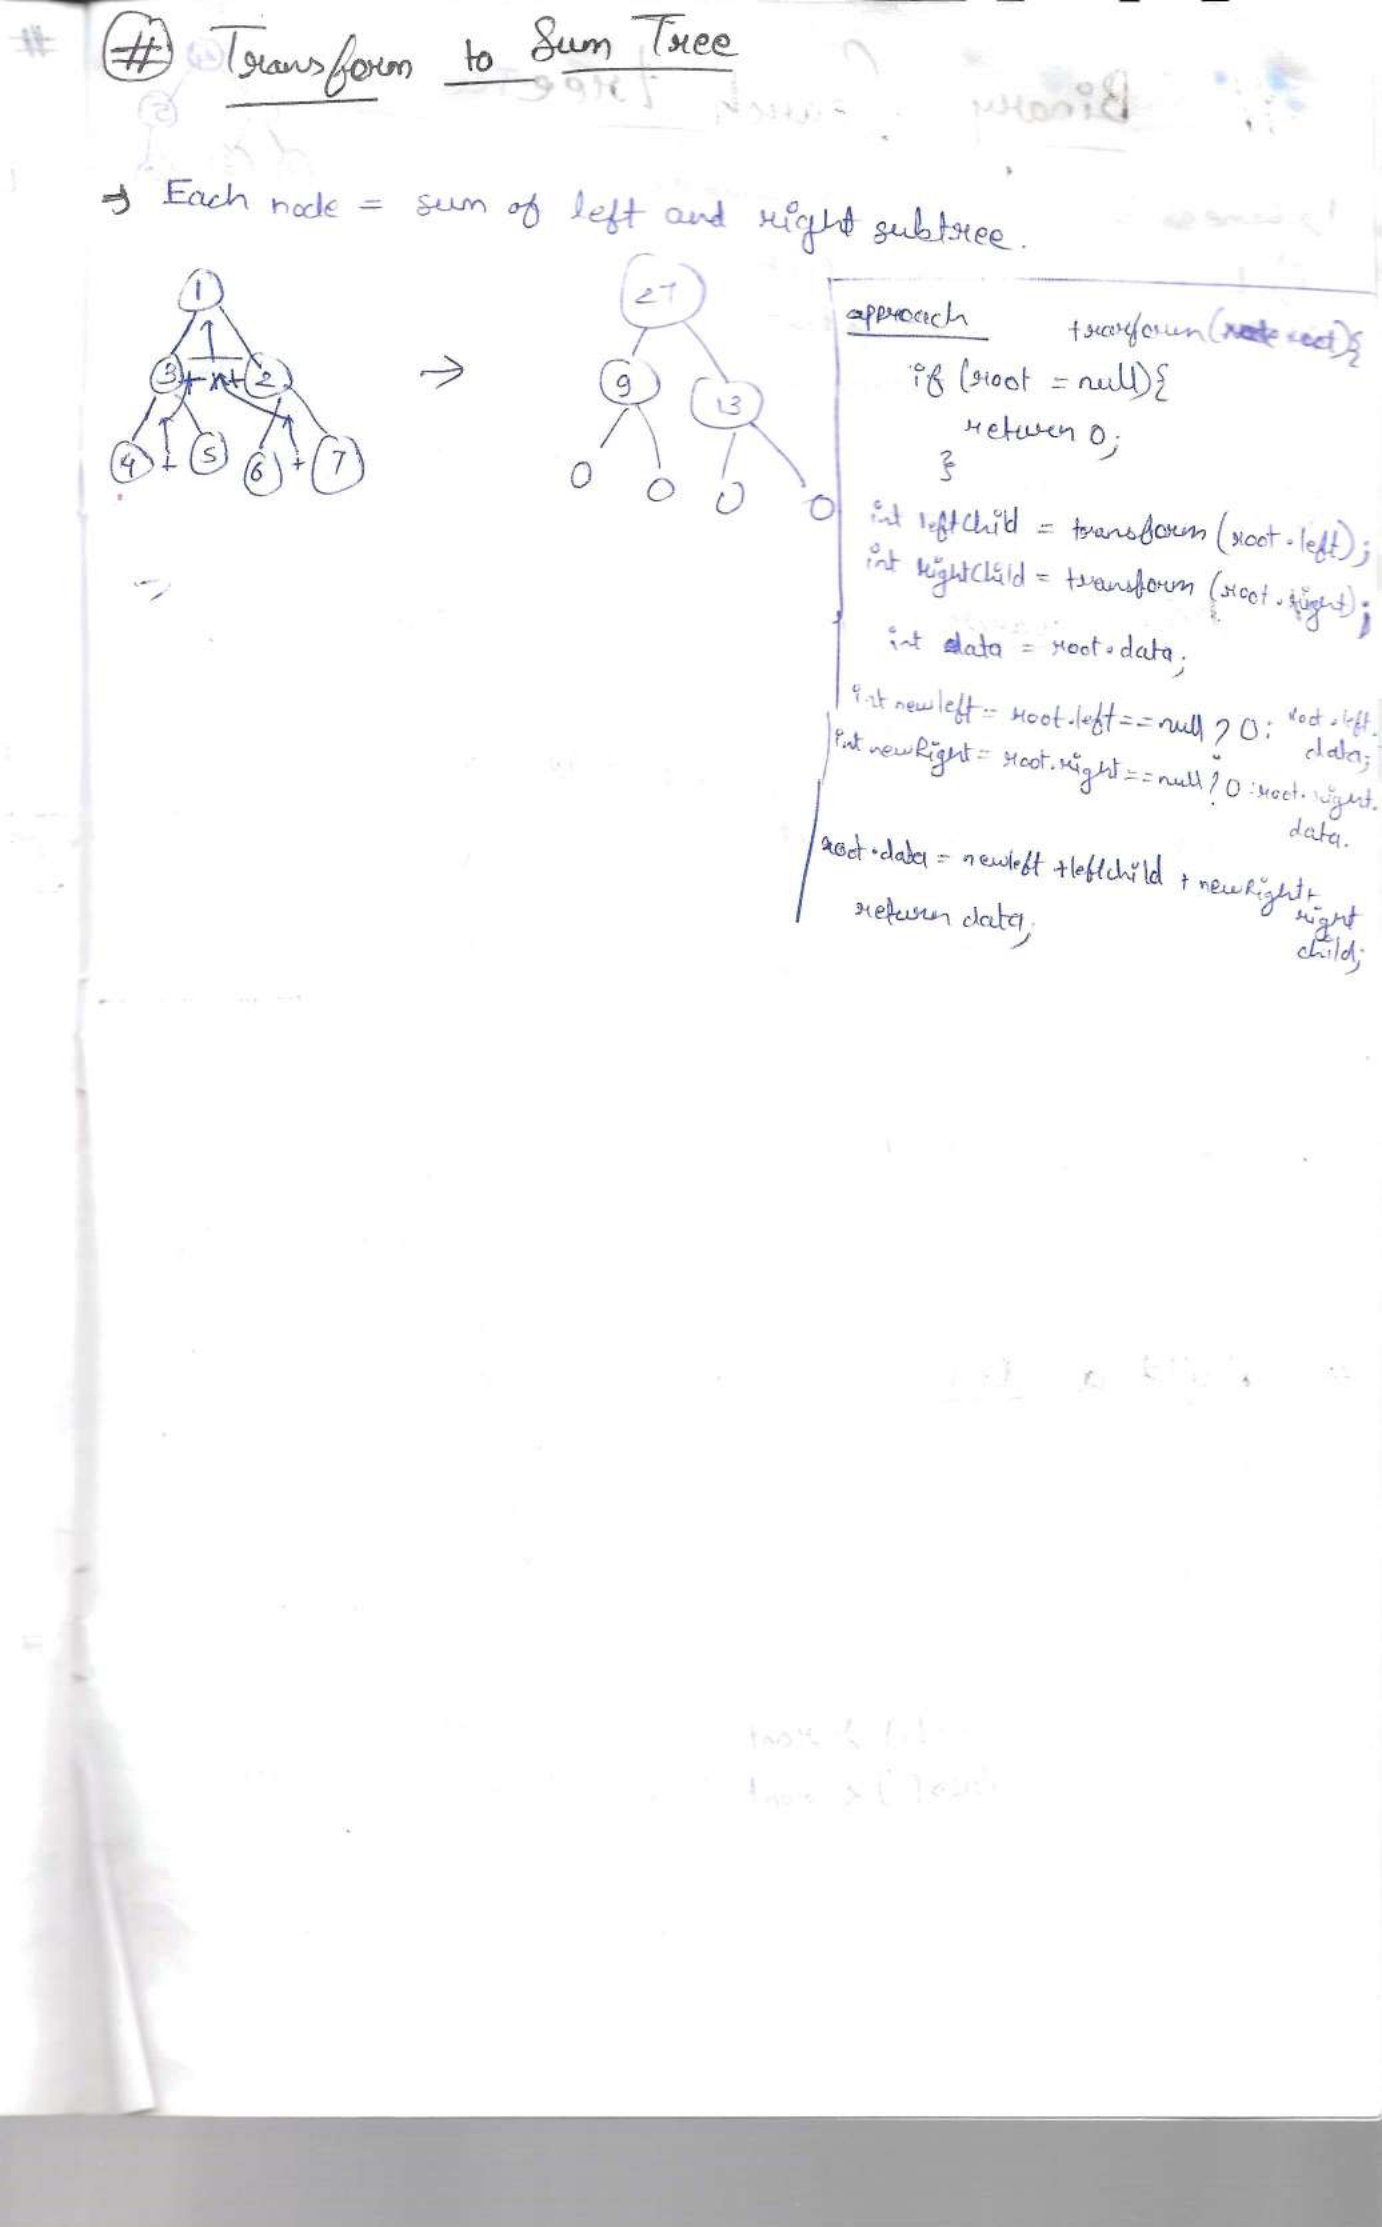 # Transform to Sum Tree
⇒ Each node = sum of left and right subtree.
1
3 + + 2
4 + 5 6 + 7
→
27
9 13
0 0 0 0
approach
transform(node root){
if (root = null){
return 0;
}
int leftchild = transform(root.left);
int rightChild = transform (root.right);
int data = root.data;
int newleft = root.left == null ? 0 : root.left.
data;
int newRight = root.right == null ? 0 : root.right.
data.
root.data = newleft + leftchild + newRight +
right
child;
return data;